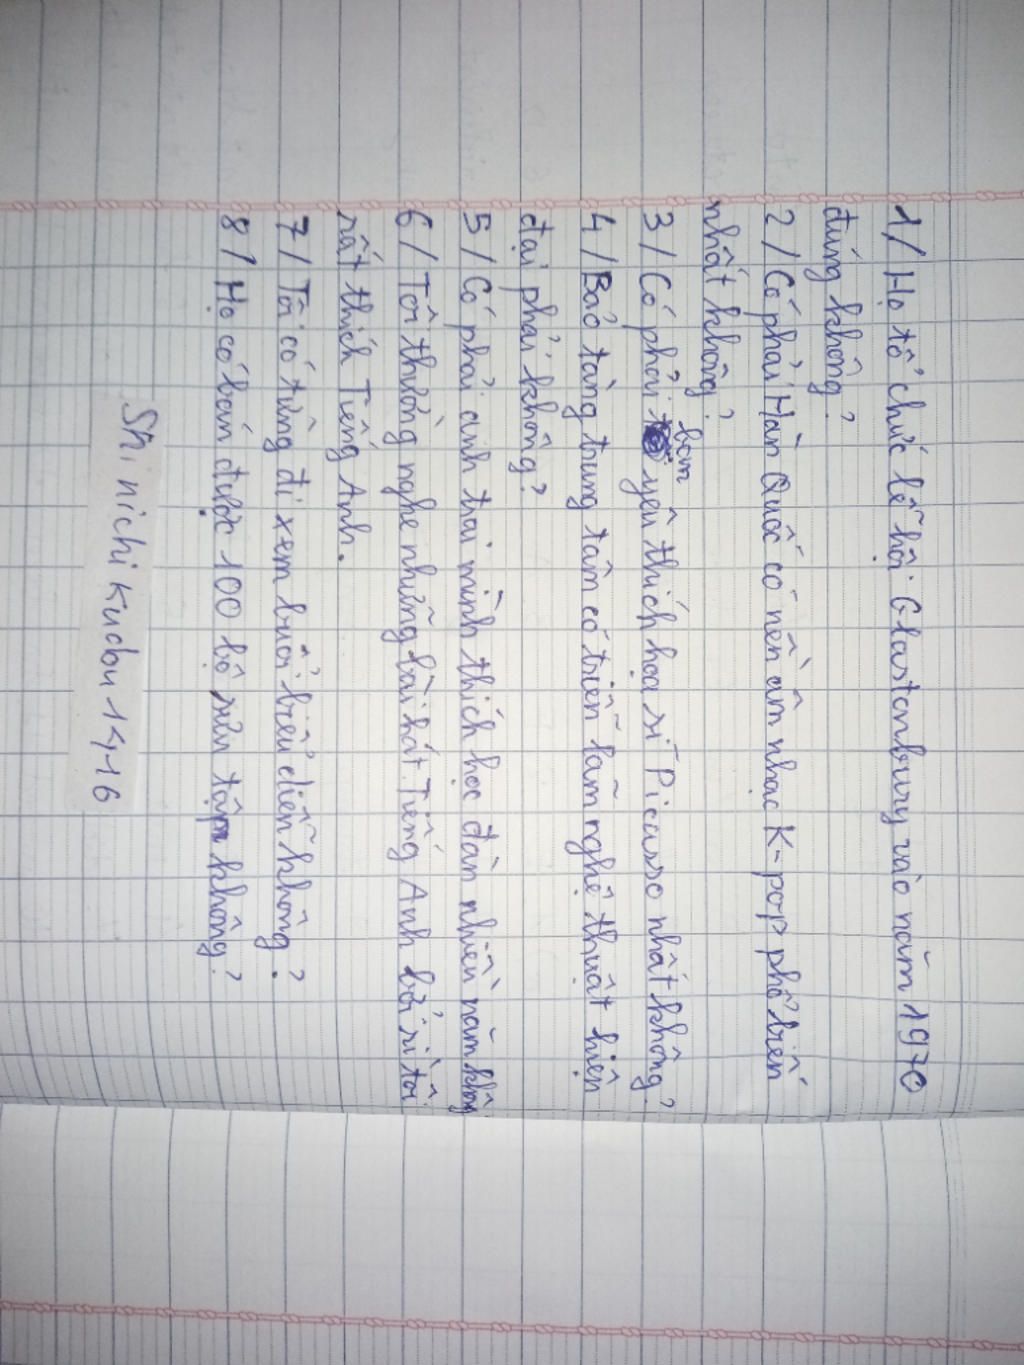 1/ Họ tổ chức lễ hội Glastonbury vào năm 1970
đúng không?
2/ Có phải Hàn Quốc có nền âm nhạc K-pop phổ biến
nhất không?
3/ Có phải bạn yêu thích họa sĩ Picasso nhất không?
4/ Bảo tàng trung tâm có triển lãm nghệ thuật hiện
đại phải không?
5/ Có phải anh trai mình thích học đàn nhiều năm không
6/ Tôi thường nghe những bài hát Tiếng Anh bởi vì tôi
rất thích Tiếng Anh.
7/ Tôi có từng đi xem buổi biểu diễn không?
8/ Họ có bán được 100 bộ sưu tập không?
Shinichi Kudou 1416